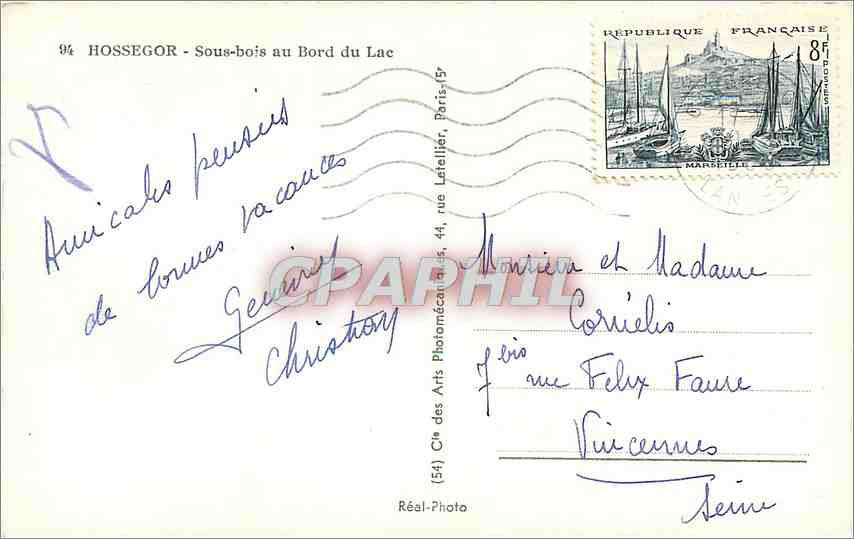 94 HOSSEGOR - Sous-bois au Bord du Lac
RÉPUBLIQUE FRANÇAISE
8F
POSTES
MARSEILLE
LANDES
Amicales pensées
de bonnes vacances
Geneviève
Christian
CPAPHIL
(54) Cie des Arts Photomécaniques, 44, rue Letellier, Paris-15e
Monsieur et Madame
Cornélis
7 bis rue Felix Faure
Vincennes
Seine
Réal-Photo